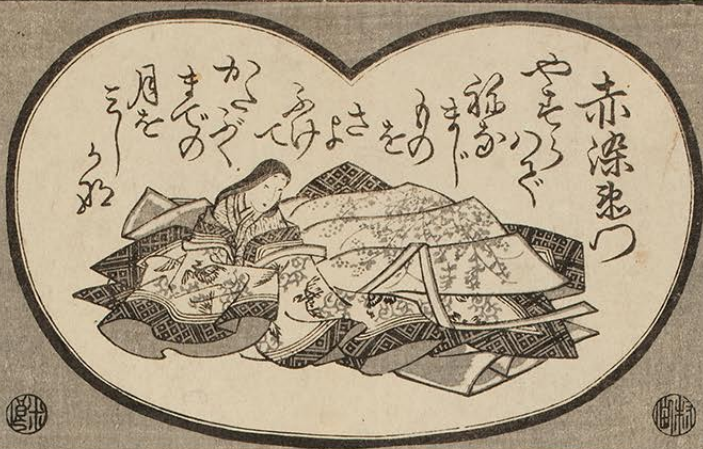 赤染衛門
やすらハで
ねな
まし
もの
を
さよ
ふけ
て
かたぶく
までの
月を
みし
かな